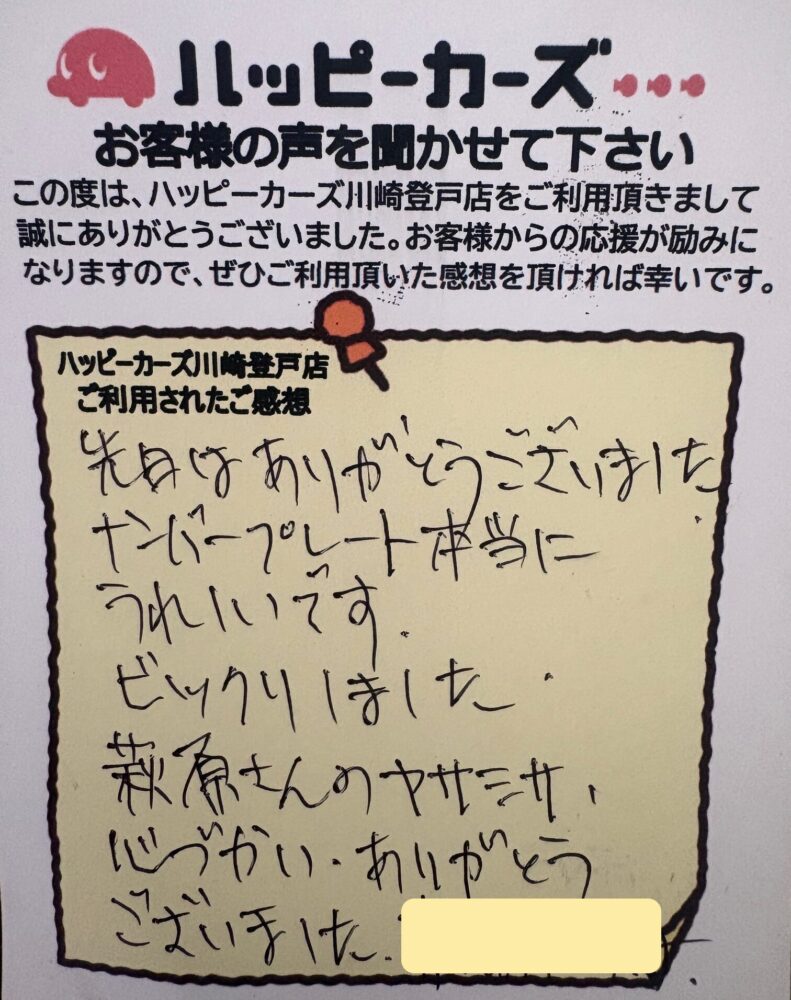 ハッピーカーズ
お客様の声を聞かせて下さい
この度は、ハッピーカーズ川崎登戸店をご利用頂きまして
誠にありがとうございました。お客様からの応援が励みに
なりますので、ぜひご利用頂いた感想を頂ければ幸いです。
ハッピーカーズ川崎登戸店
ご利用されたご感想
先日はありがとうございました
ナンバープレート本当に
うれしいです.
ビックリしました.
萩原さんのヤサシサ、
心づかい.ありがとう
ございました.